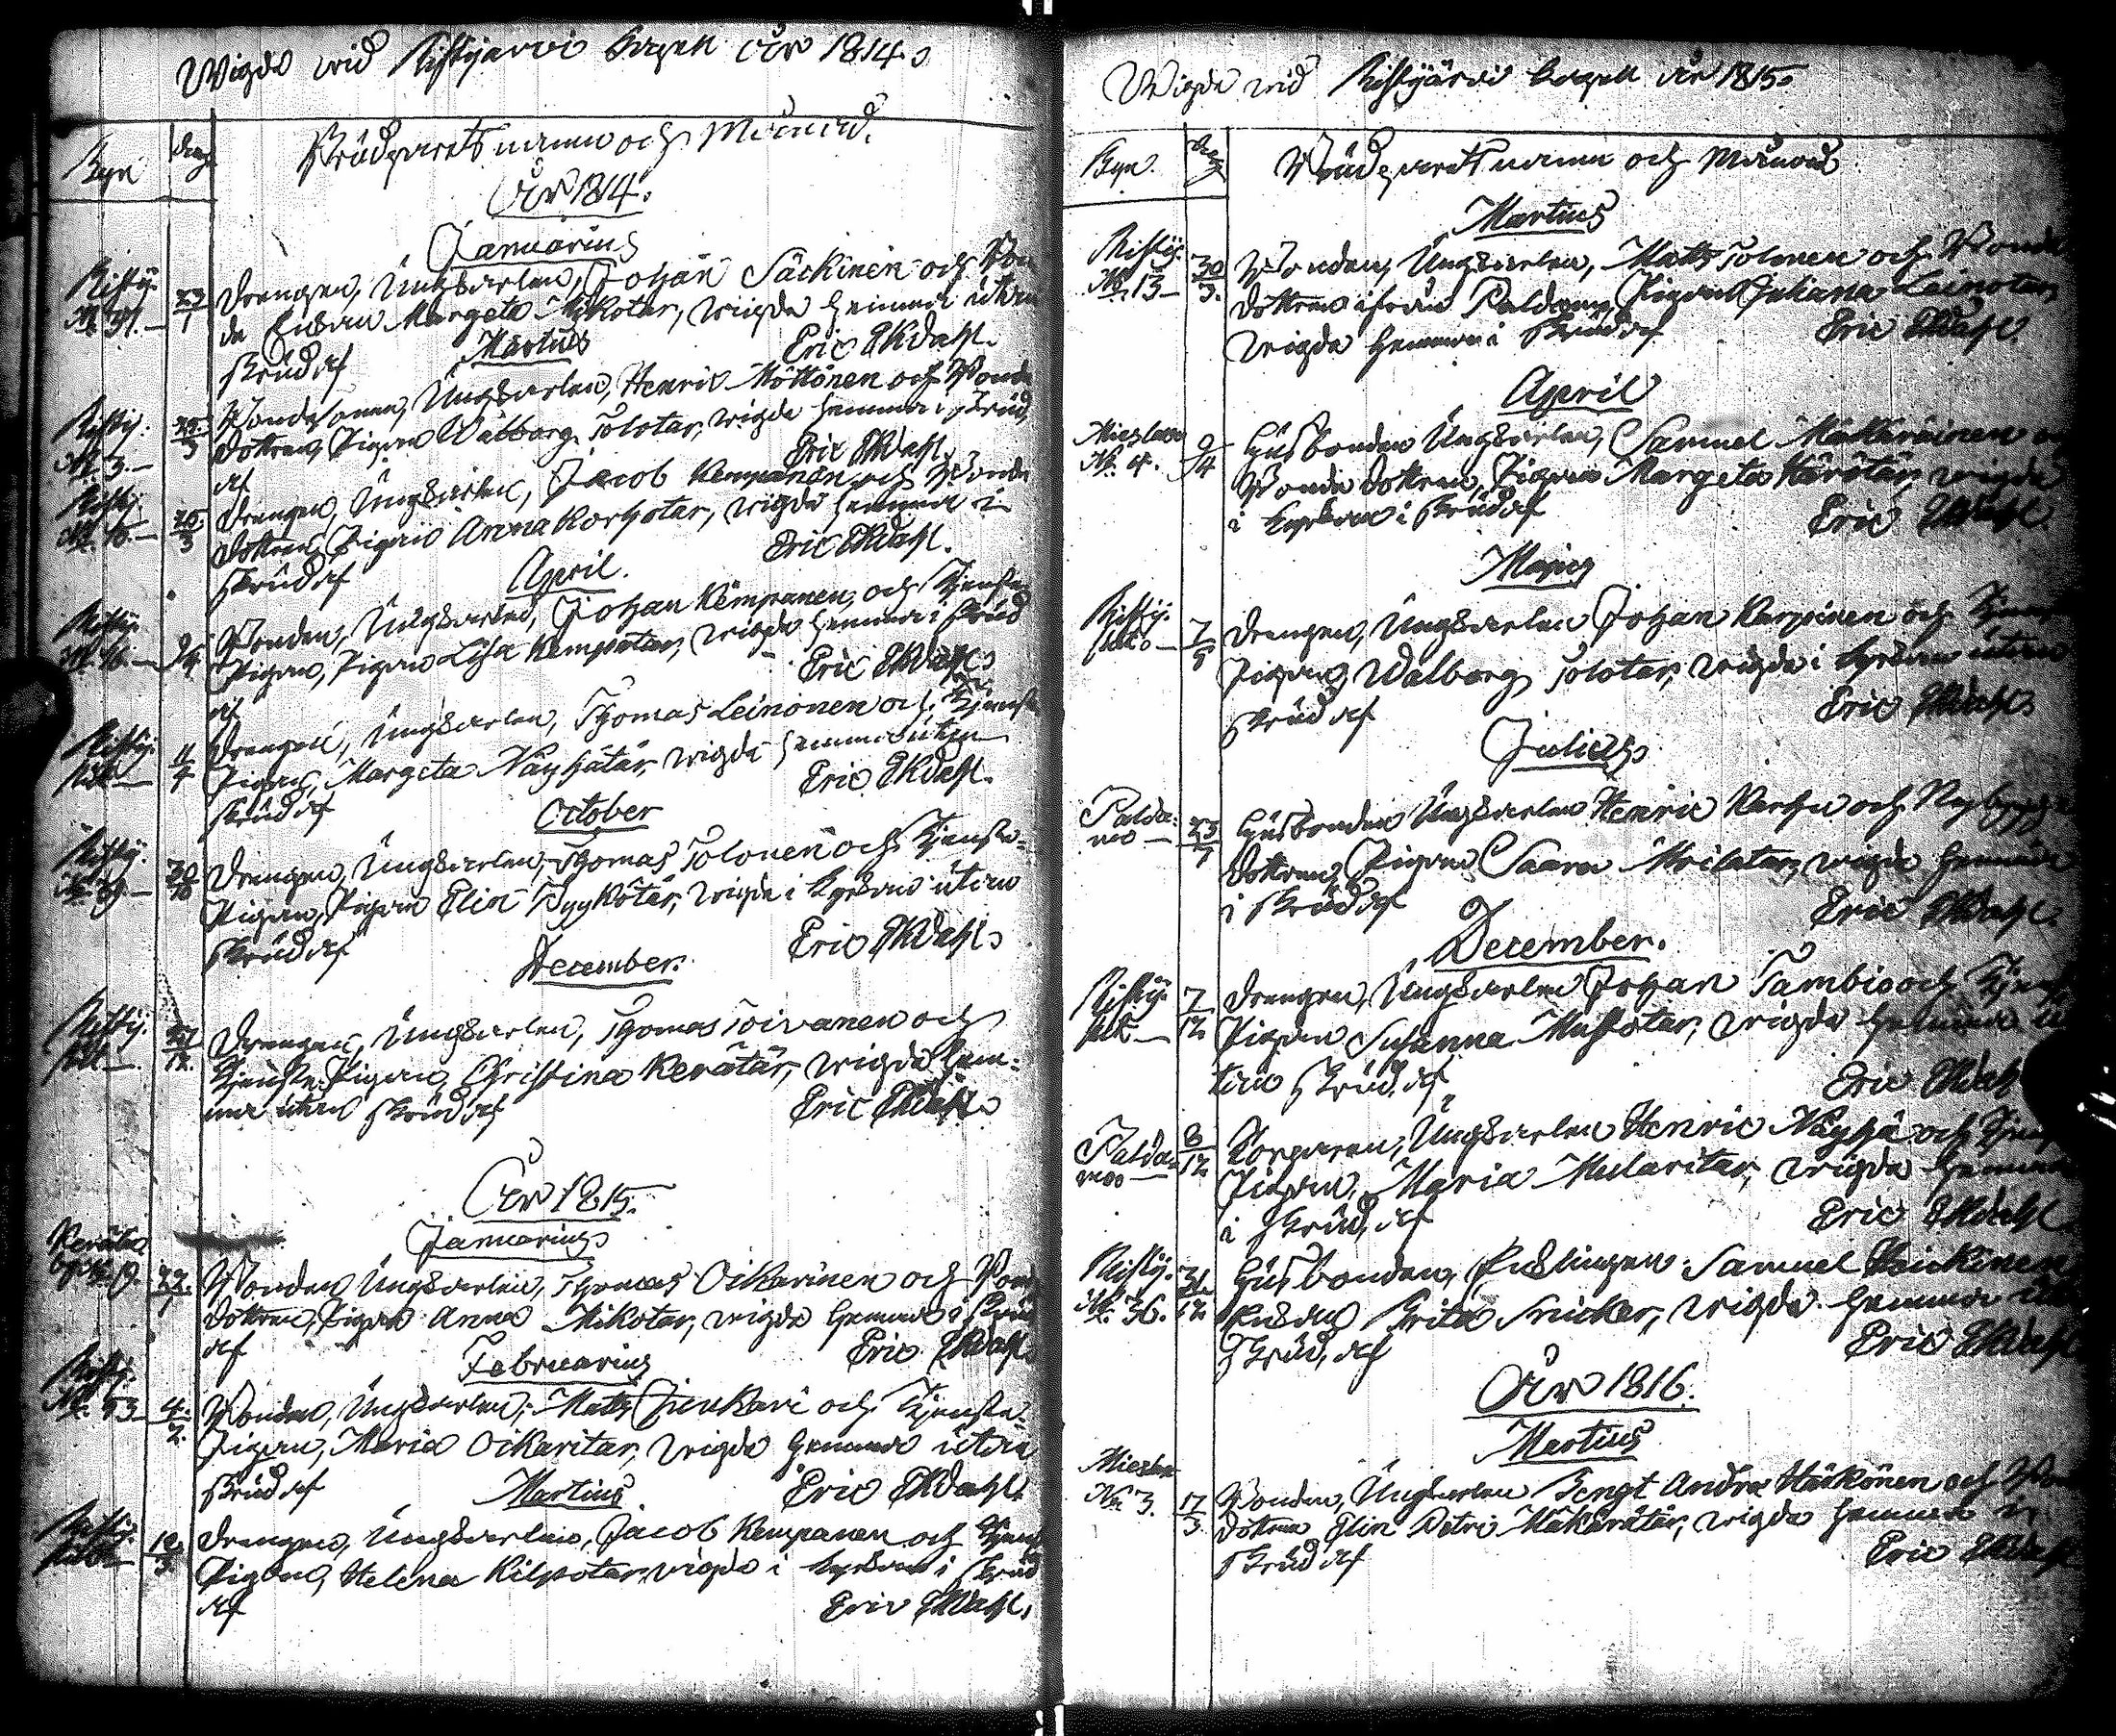 Wigde wid Ristijärvi Capell år 1814.
Byn
dag
Brudparets namn och Månad.
År 1814.
Januarius
Ristij. 23/1 Drengen, Ungkarlen, Johan Säckinen och Bon
de Enkan Margeta Mikotar, wigde hemma utan
skrud af Eric Ekdahl.
Martius
Ristij. N. 3. Bondesonen, Ungkarlen, Henric Möttönen och Bonde
dottren, Pigan Walborg Tolotar, wigde hemma i skrud,
af Eric Ekdahl.
Ristij. Drengen, Ungkarlen, Jacob Kemppanen och Bonde
dottren, Pigan Anna Korhotar, wigde hemma i
skrud af Eric Ekdahl.
April.
Ristij. Bonden, Ungkarlen, Johan Kemppanen, och Tjenste
Pigan, Pigan Lisa Kempatar, wigde hemma i skrud
af Eric Ekdahl.
Ristij. 11/4 Drengen, Ungkarlen, Thomas Leinonen och Tjenste
Pigan, Margeta Näyhätär, wigde hemma utan
skrud af Eric Ekdahl.
October
Ristij. Drengen, Ungkarlen, Thomas Tolonen och Tjenste-
Pigan, Pigan Elin Pyykötär, wigde i Kyrkan utan
skrud af Eric Ekdahl.
December.
Ristij. Drengen, Ungkarlen, Thomas Toivanen och
Tjenste Pigan, Christina Kerätär, wigde hem-
ma utan skrud af Eric Ekdahl.
År 1815.
Januarius
Bonden Ungkarlen, Thomas Oikarinen och Bonde
dottren, Pigan Anna Mikotar, wigde hemma i skrud
af Eric Ekdahl.
Februarius
Ristij. N. 53 4/2. Bonden, Ungkarlen, Matts Juukari och Tjenste-
Pigan, Maria Oikaritar, wigde hemma utan
skrud af Eric Ekdahl.
Martius
Ristij. Drengen, Ungkarlen, Jacob Kempanen och Tjenst
Pigan, Helena Kilpotar, wigde i Kyrkan i skrud
af Eric Ekdahl.
Wigde wid Ristijärvi Capell år 1815.
Byn.
dag
Brudparets namn och Månad
Martius
Ristij. N. 13 30/3. Bonden, Ungkarlen, Matts Tolonen och Bonde
dottren ifrån Paldamo, Pigan Juliana Leinotar,
wigde hemma i skrud af Eric Ekdahl.
April
Mieslax N. 4. 9/4 Husbonden Ungkarlen, Samuel
Bonde dottren, Pigan Margeta Härötär, wigde
i Kyrkan i skrud af Eric Ekdahl.
Majus
Ristij. 7/5 Drengen, Ungkarlen Johan Karppinen och Tjenst
Pigan, Walborg Tolotar, wigde i Kyrkan utan
skrud af Eric Ekdahl.
Julius
Paldamo 23/7 Husbonden Ungkarlen Henric Karhu och Nybygga
dottren, Pigan Saara wigde hemma
i skrud af Eric Ekdahl.
December.
Ristij. 7/12 Drengen, Ungkarlen Johan Tambio och Tjenst
Pigan Susanna Mustotar, wigde hemma u
tan skrud, af Eric Ekdahl
Paldamo 8/12 Torparen, Ungkarlen Henric Näyhä och Tjenst
Pigan, Maria Mularitar, wigde hemma
i skrud, af Eric Ekdahl.
Ristij. N. 36. 31/12 Husbonden, Enklingen Samuel Heickinen
Enkan Brita wigde hemma
skrud, af Eric Ekdahl
År 1816.
Martius
Mieslax N. 3. 17/3. Bonden, Ungkarlen Bengt Andr: Härkönen och Bon
dottren Elin Petri wigde hemma
skrud af Eric Ekdahl